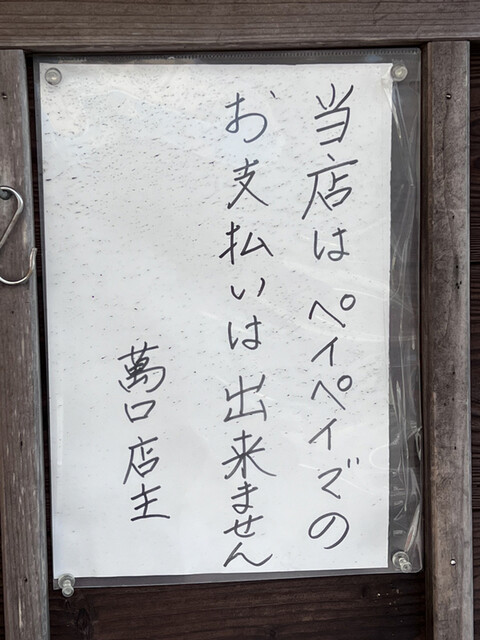 当店はペイペイでの
お支払いは出来ません
萬口店主